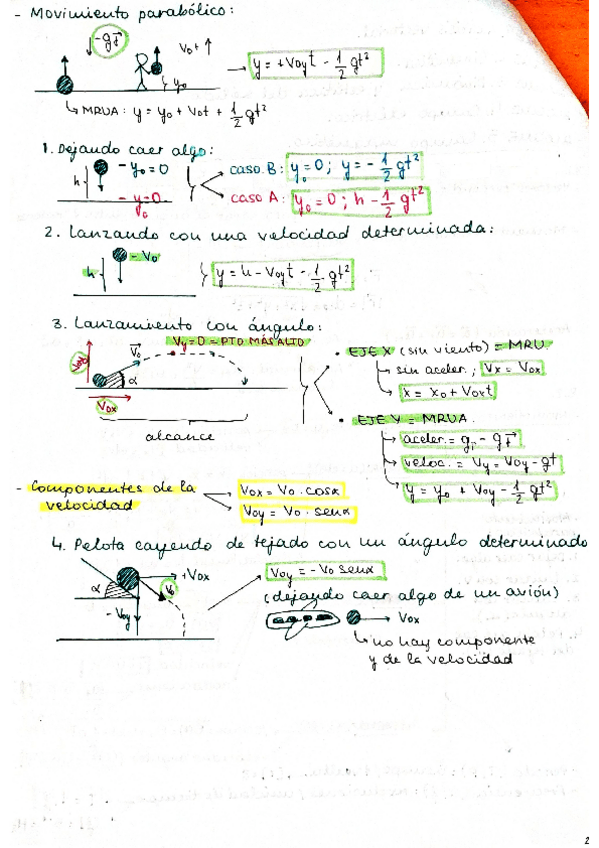 - Movimiento parabólico:
-g j⃗
v₀+ ↑
y₀
→ y = +v₀yt - 1/2 gt²
↳ MRUA: y = y₀ + v₀t + 1/2 gt²
1. Dejando caer algo:
h
- y₀ = 0
- y₀ = 0
caso B: y₀ = 0; y = - 1/2 gt²
caso A: y₀ = 0; h - 1/2 gt²
2. Lanzando con una velocidad determinada:
h
- v₀
y = h - v₀yt - 1/2 gt²
3. Lanzamiento con ángulo:
Vy = 0 = PTO MÁS ALTO
v⃗₀
α
v₀x
alcance
• EJE X (sin viento) = MRU.
↳ sin aceler.; Vx = v₀x
↳ x = x₀ + v₀xt
• EJE Y = MRUA.
→ veloc. = Vy = v₀y - gt
↳ y = y₀ + v₀y - 1/2 gt²
- Componentes de la
velocidad
v₀x = v₀ · cosα
v₀y = v₀ · senα
4. Pelota cayendo de tejado con un ángulo determinado
α
+v₀x
v₀
- v₀y
v₀y = - v₀ senα
(dejando caer algo de un avión)
→ v₀x
↳ no hay componente
y de la velocidad
2